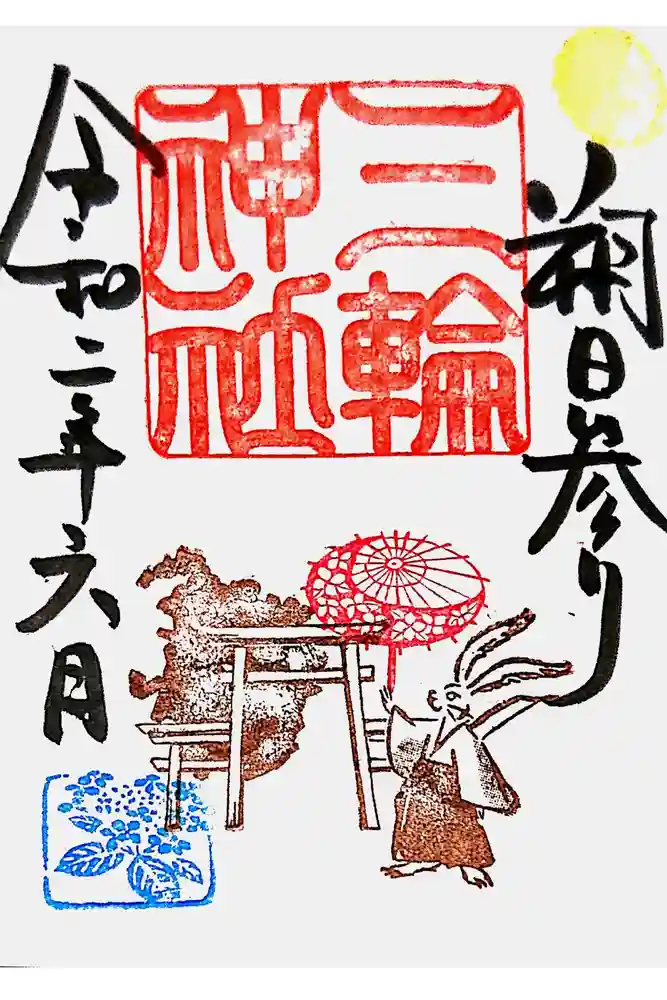 朔日参り
三輪
神社
令和二年六月